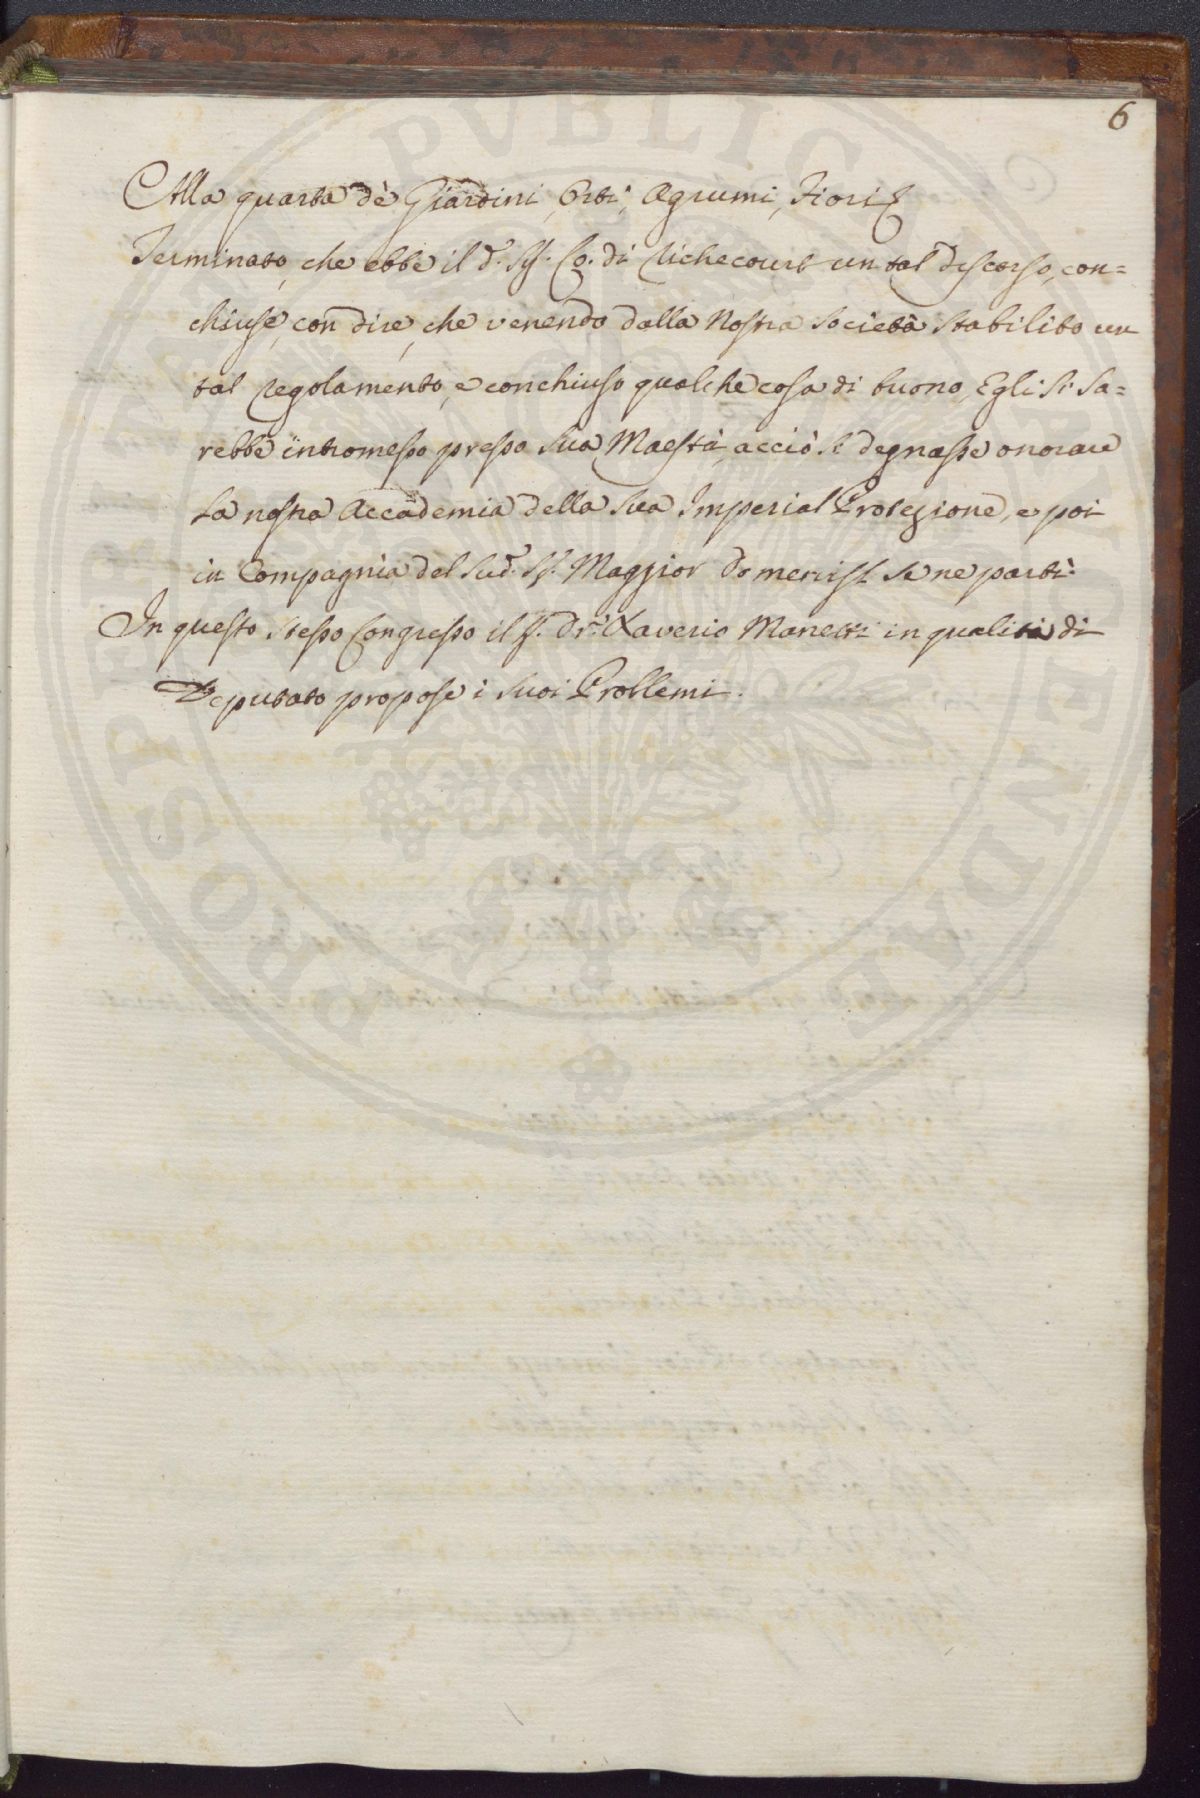 6
Alla quarta dè Giardini, Orti, Agrumi, Fiori
Terminato, che ebbe il d.º Sig.r Co. di Richecourt un tal discorso, con=
chiuse, con dire, che venendo dalla Nostra Società stabilito un
tal regolamento, e conchiuso qualche cosa di buono, Egli si sa=
rebbe intromesso presso Sua Maestà, acciò si degnasse onorare
la nostra Accademia della Sua Imperial Protezione, e poi
in Compagnia del Sud.º Sig.r Maggior domenist se ne partì.
In questo stesso Congresso il S. Dr. Xaverio Manetti in qualità di
Deputato propose i suoi Problemi.
PROSPERITATI PVBLICAE AVGENDAE